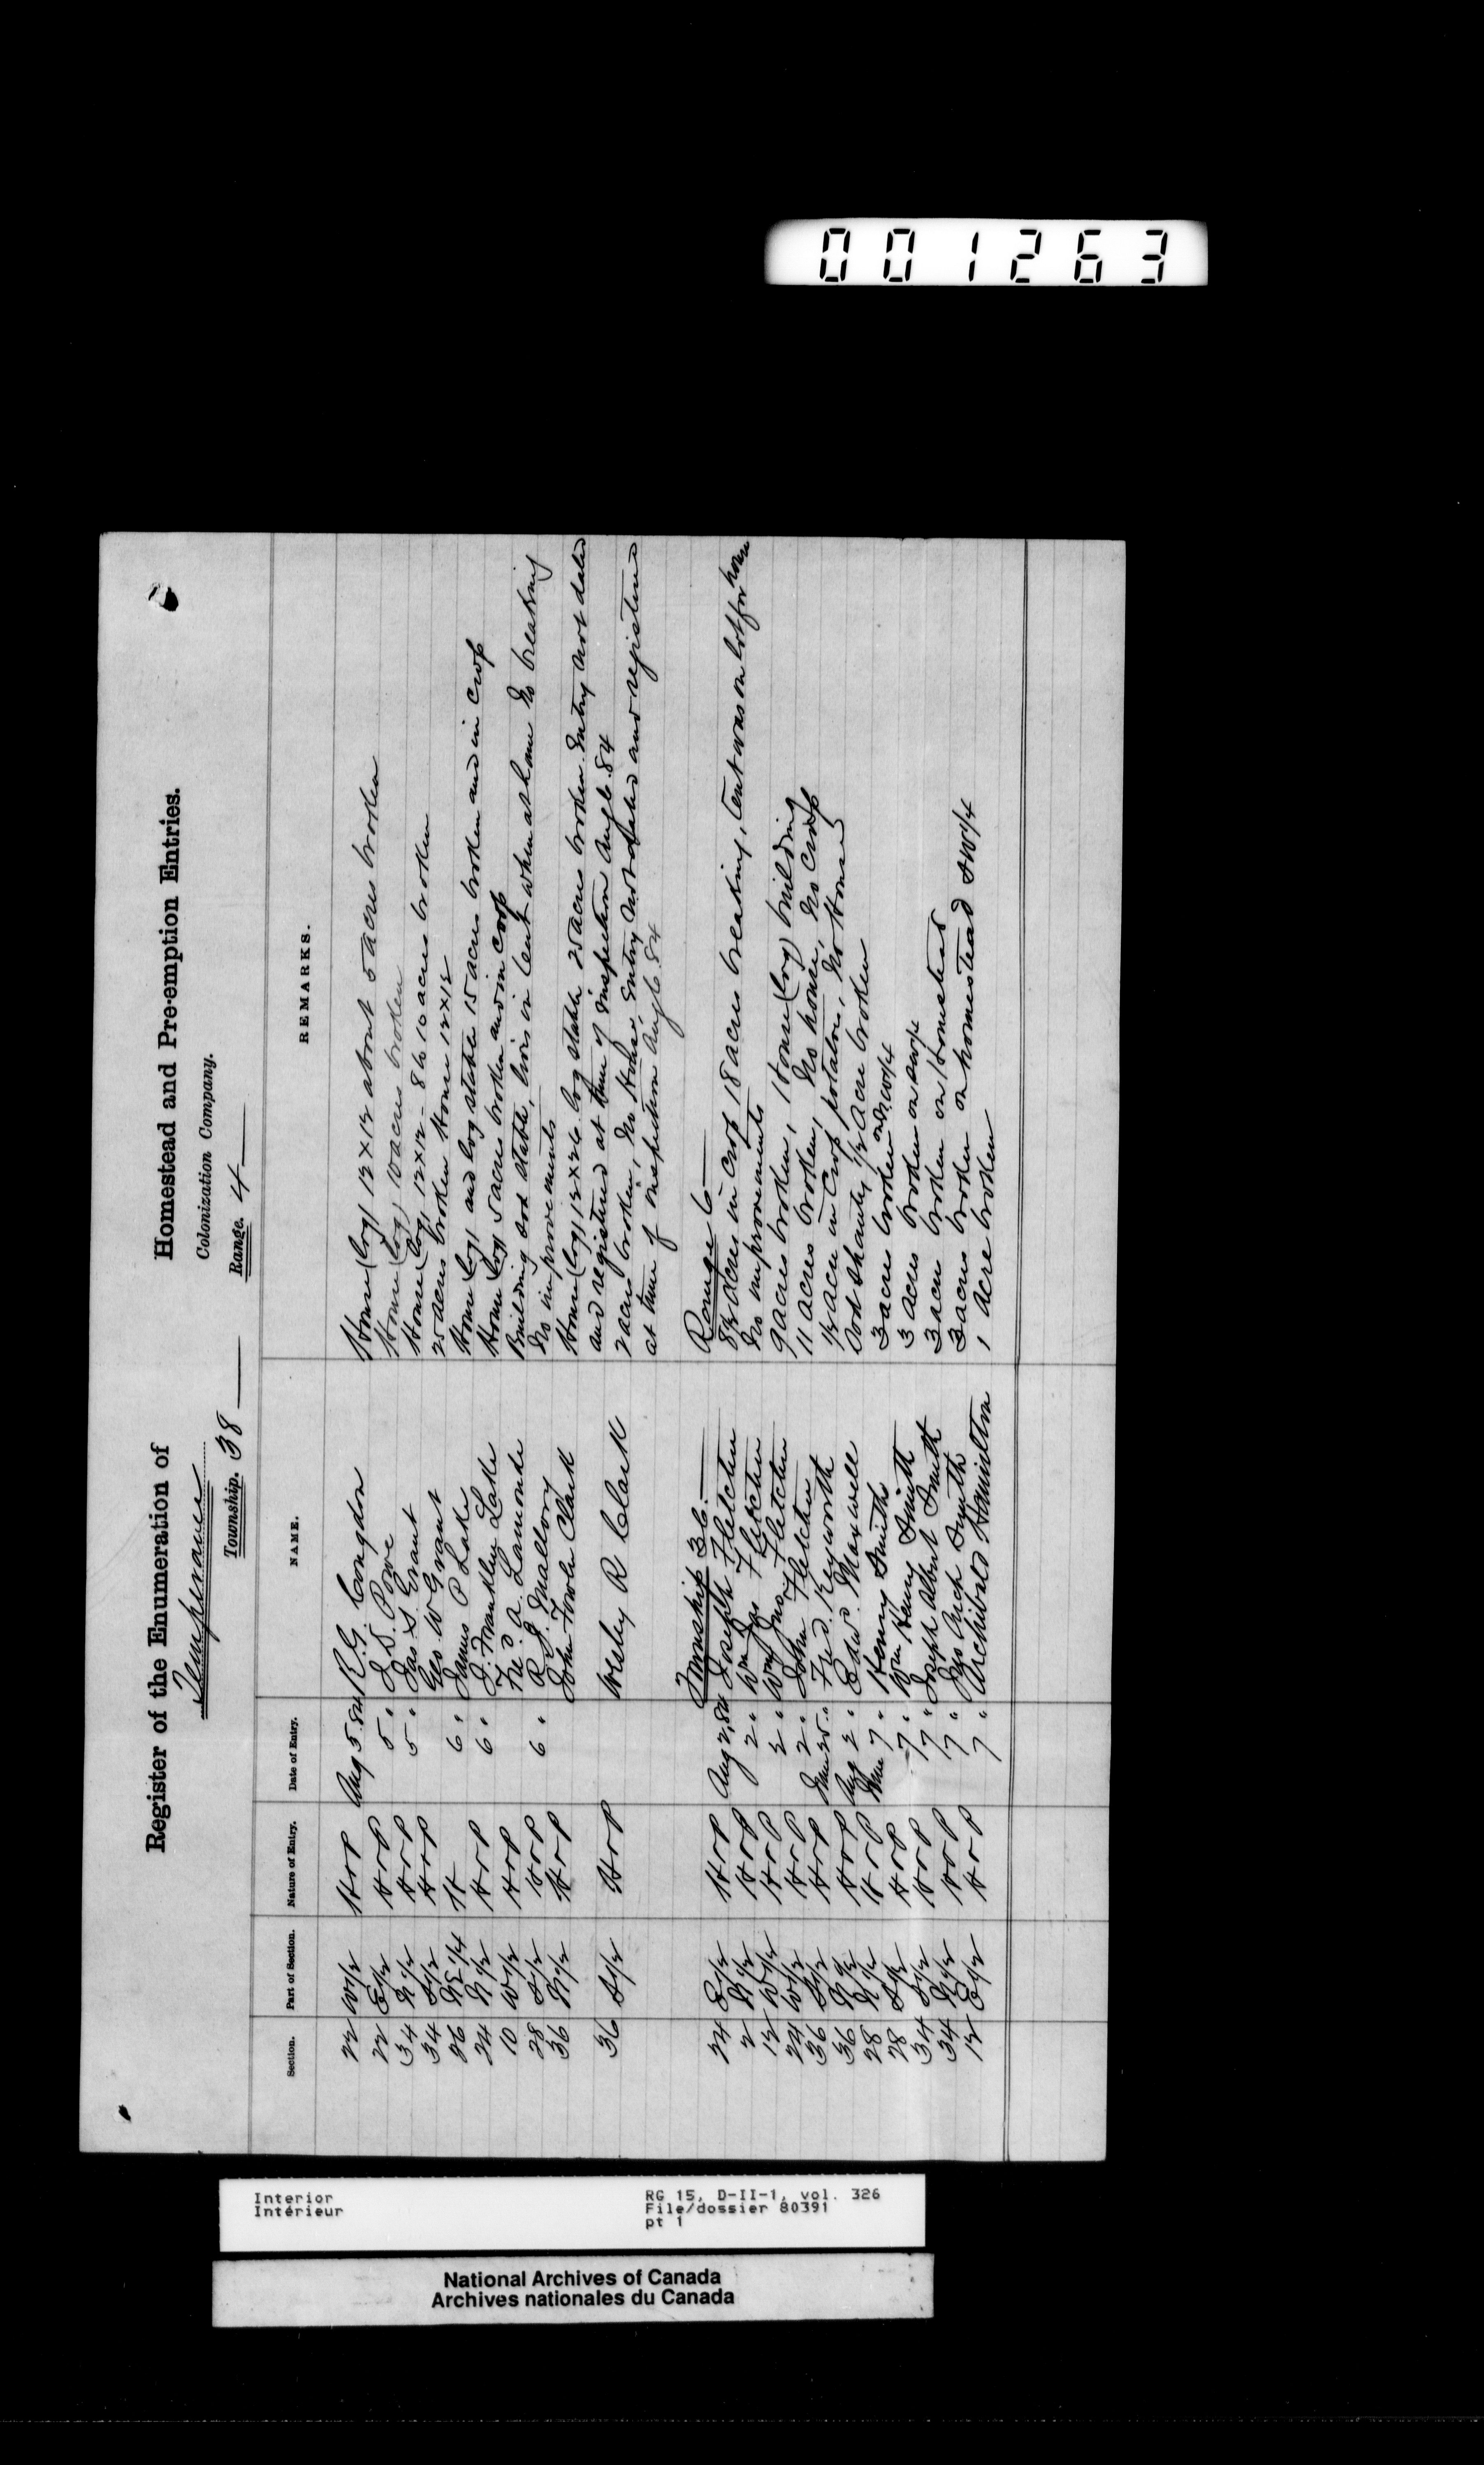 001263
Register of the Enumeration of Homestead and Pre-emption Entries.
Temperance Colonization Company.
Township. 38 Range. 4
Section. Part of Section. Nature of Entry. Date of Entry. NAME. REMARKS.
22 W1/2 H & P Aug 5 84 R. G. Congdon House (log) 12 x 12 about 5 acres broken
22 E1/2 H & P 5 " Powe House (log) 10 acres broken
34 N1/2 H & P 5 " Jas S. Grant House (log) 12 x 12 - 8 to 10 acres broken
34 S1/2 H & P Geo. W Grant 25 acres broken House 12 x 12
26 NE1/4 H 6 " James P Lake House (log) and log stable 15 acres broken and in crop
24 N1/2 H & P 6 " J. Franklin Lake House (log) 5 acres broken and in crop
10 W1/2 H & P Fred. A. Lamonde Building sod stable, lives in tent when at home No breaking
28 S1/2 H & P 6 " R J. Mallory No improvements
36 N1/2 H & P John Fowler Clark House (log) 12 x 26 log stable 25 acres broken. Entry not dated
and registered at time of inspection Aug 6. 84
36 S1/2 H & P Wesley R Clark 2 acres broken, No House, Entry not dated and registered
at time of inspection Aug 6. 84
Township 36. Range 6
24 E1/2 H & P Aug 2, 84 Joseph Fletcher 8 1/2 acres in crop 18 acres breaking, Tent was on lot for house
2 N1/2 H & P 2 " Wm Jas Fletcher No improvements
12 W1/2 H & P 2 " Wm Jno Fletcher 9 acres broken, 1 House (log) building
24 W1/2 H & P 2 " John Fletcher 11 acres broken, No house, No crop
36 S1/2 H & P June 25 " Fred. Keyworth 1/2 acre in crop potatoes, No House
36 N1/2 H & P Aug 2 " Edwd. Maxwell Sod shanty 1/2 acre broken
28 N1/2 H & P June 7 " Henry Smith 3 acres broken on NW1/4
28 S1/2 H & P 7 " Wm Henry Smith 3 acres broken on SW1/4
34 S1/2 H & P 7 " Joseph Albert Smith 3 acres broken on Homestead
34 N1/2 H & P 7 " Arch Smith 3 acres broken on homestead SW1/4
12 E1/2 H & P 7 " Archibald Hamilton 1 acre broken
Interior
Intérieur
RG 15, D-II-1, vol. 326
File/dossier 80391
pt 1
National Archives of Canada
Archives nationales du Canada